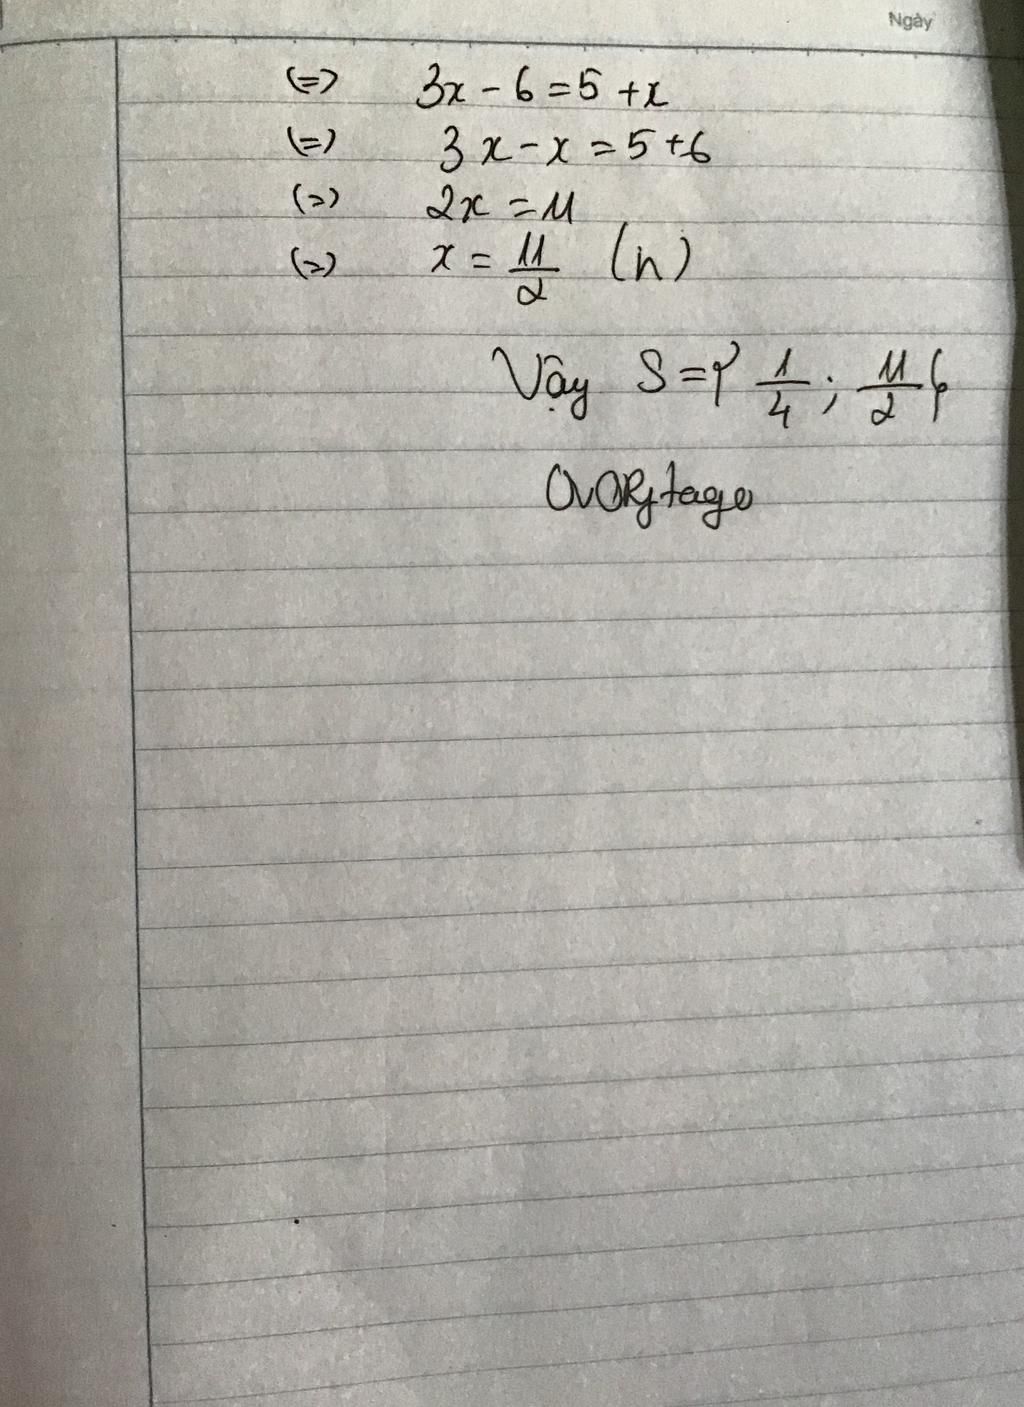 Ngày
(=) 3x - 6 = 5 + x
(=) 3x - x = 5 + 6
(=) 2x = 11
(=) x = 11/2 (n)
Vậy S = { 1/4 ; 11/2 }